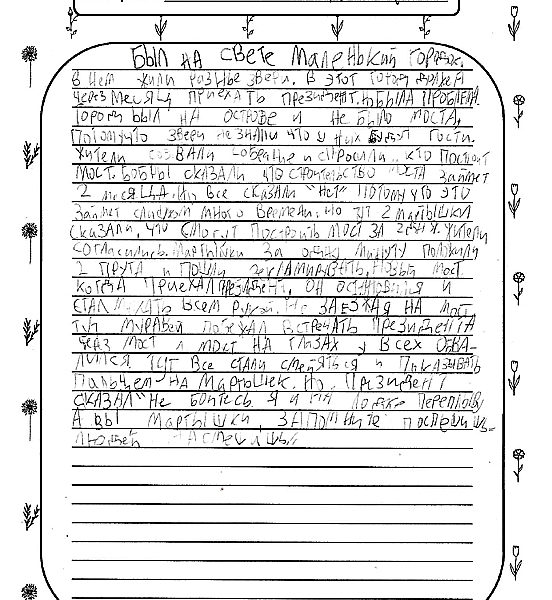 БЫЛ НА СВЕТЕ МАЛЕНЬКИЙ ГОРОДОК.
В НЕМ ЖИЛИ РАЗНЫЕ ЗВЕРИ. В ЭТОТ ГОРОД ДОЛЖЕН
ЧЕРЕЗ МЕСЯЦ ПРИЕХАТЬ ПРЕЗИДЕНТ. НО БЫЛА ПРОБЛЕМА.
ГОРОД БЫЛ НА ОСТРОВЕ И НЕ БЫЛО МОСТА,
ПОТОМУЧТО ЗВЕРИ НЕ ЗНАЛИ ЧТО У НИХ БУДУТ ГОСТИ.
ЖИТЕЛИ СОЗВАЛИ СОБРАНИЕ И СПРОСИЛИ КТО ПОСТРОИТ
МОСТ. БОБРЫ СКАЗАЛИ ЧТО СТРОИТЕЛЬСТВО МОСТА ЗАЙМЕТ
2 МЕСЯЦА. НО ВСЕ СКАЗАЛИ "НЕТ" ПОТОМУ ЧТО ЭТО
ЗАЙМЕТ СЛИШКОМ МНОГО ВРЕМЕНИ. НО ТУТ 2 МАРТЫШКИ
СКАЗАЛИ, ЧТО СМОГУТ ПОСТРОИТЬ МОСТ ЗА ЖИТЕЛИ
СОГЛАСИЛИСЬ. МАРТЫШКИ ЗА ОДНУ МИНУТУ ПОЛОЖИЛИ
2 ПРУТА И ПОШЛИ НОВЫЙ МОСТ.
КОГДА ПРИЕХАЛ ПРЕЗИДЕНТ, ОН ОСТАНОВИЛСЯ И
СТАЛ МАХАТЬ ВСЕМ РУКОЙ. НЕ ЗАЕЗЖАЯ НА МОСТ
ТУТ МУРАВЕЙ ПОЕХАЛ ВСТРЕЧАТЬ ПРЕЗИДЕНТА
ЧЕРЕЗ МОСТ И МОСТ НА ГЛАЗАХ У ВСЕХ ОБВА-
ЛИЛСЯ. ТУТ ВСЕ СТАЛИ СМЕЯТЬСЯ И ПОКАЗЫВАТЬ
ПАЛЬЦЕМ НА МАРТЫШЕК. НО ПРЕЗИДЕНТ
СКАЗАЛ "НЕ БОЙТЕСЬ Я И НА ЛОДКЕ ПЕРЕПЛЫВУ
А ВЫ МАРТЫШКИ ЗАПОМНИТЕ ПОСПЕШИШЬ-
ЛЮДЕЙ НАСМЕШИШЬ"